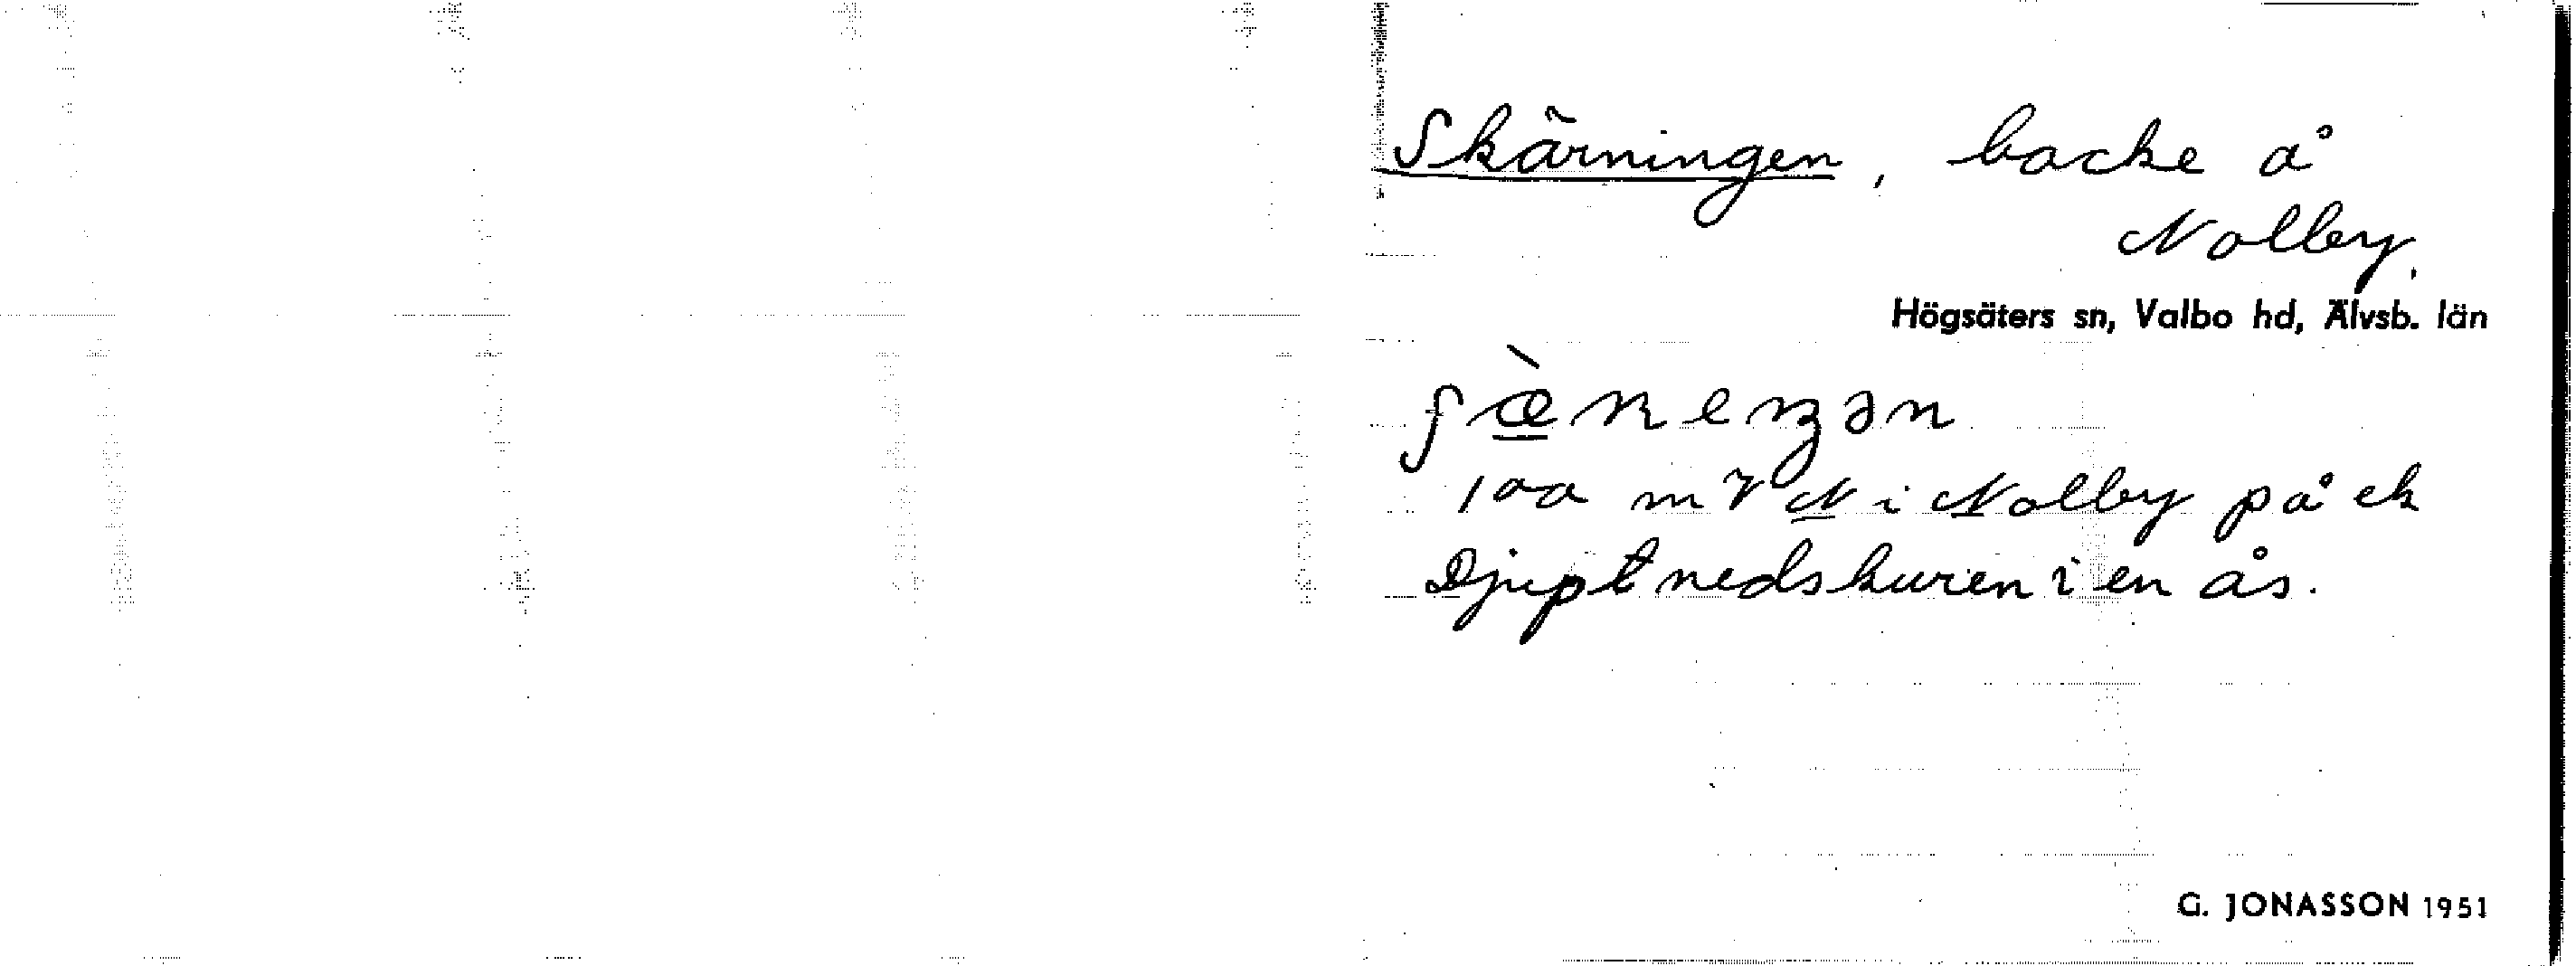 Skärningen, backe å
Nolby.
Högsäters sn, Valbo hd, Älvsb. län
100 m V N i Nolby på ek
Djupt nedskuren i en ås.
G. JONASSON 1951